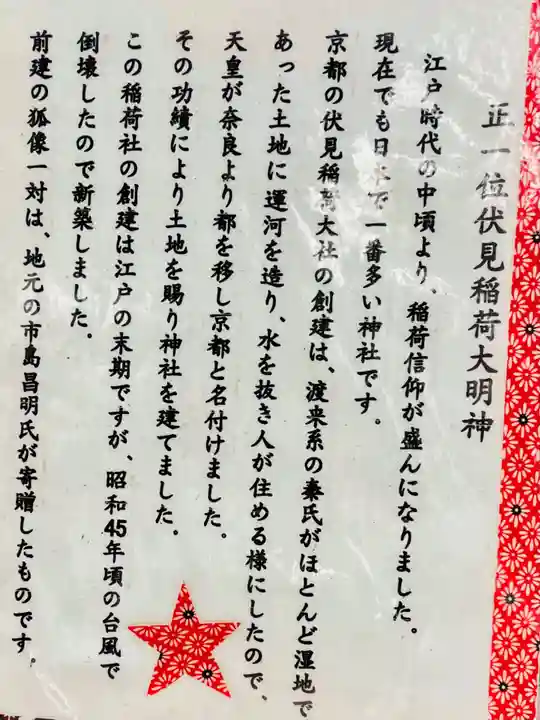 正一位伏見稲荷大明神
江戸時代の中頃より、稲荷信仰が盛んになりました。
現在でも日本で一番多い神社です。
京都の伏見稲荷大社の創建は、渡来系の秦氏がほとんど湿地で
あった土地に運河を造り、水を抜き人が住める様にしたので、
天皇が奈良より都を移し京都と名付けました。
その功績により土地を賜り神社を建てました。
この稲荷社の創建は江戸の末期ですが、昭和45年頃の台風で
倒壊したので新築しました。
前建の狐像一対は、地元の市島昌明氏が寄贈したものです。